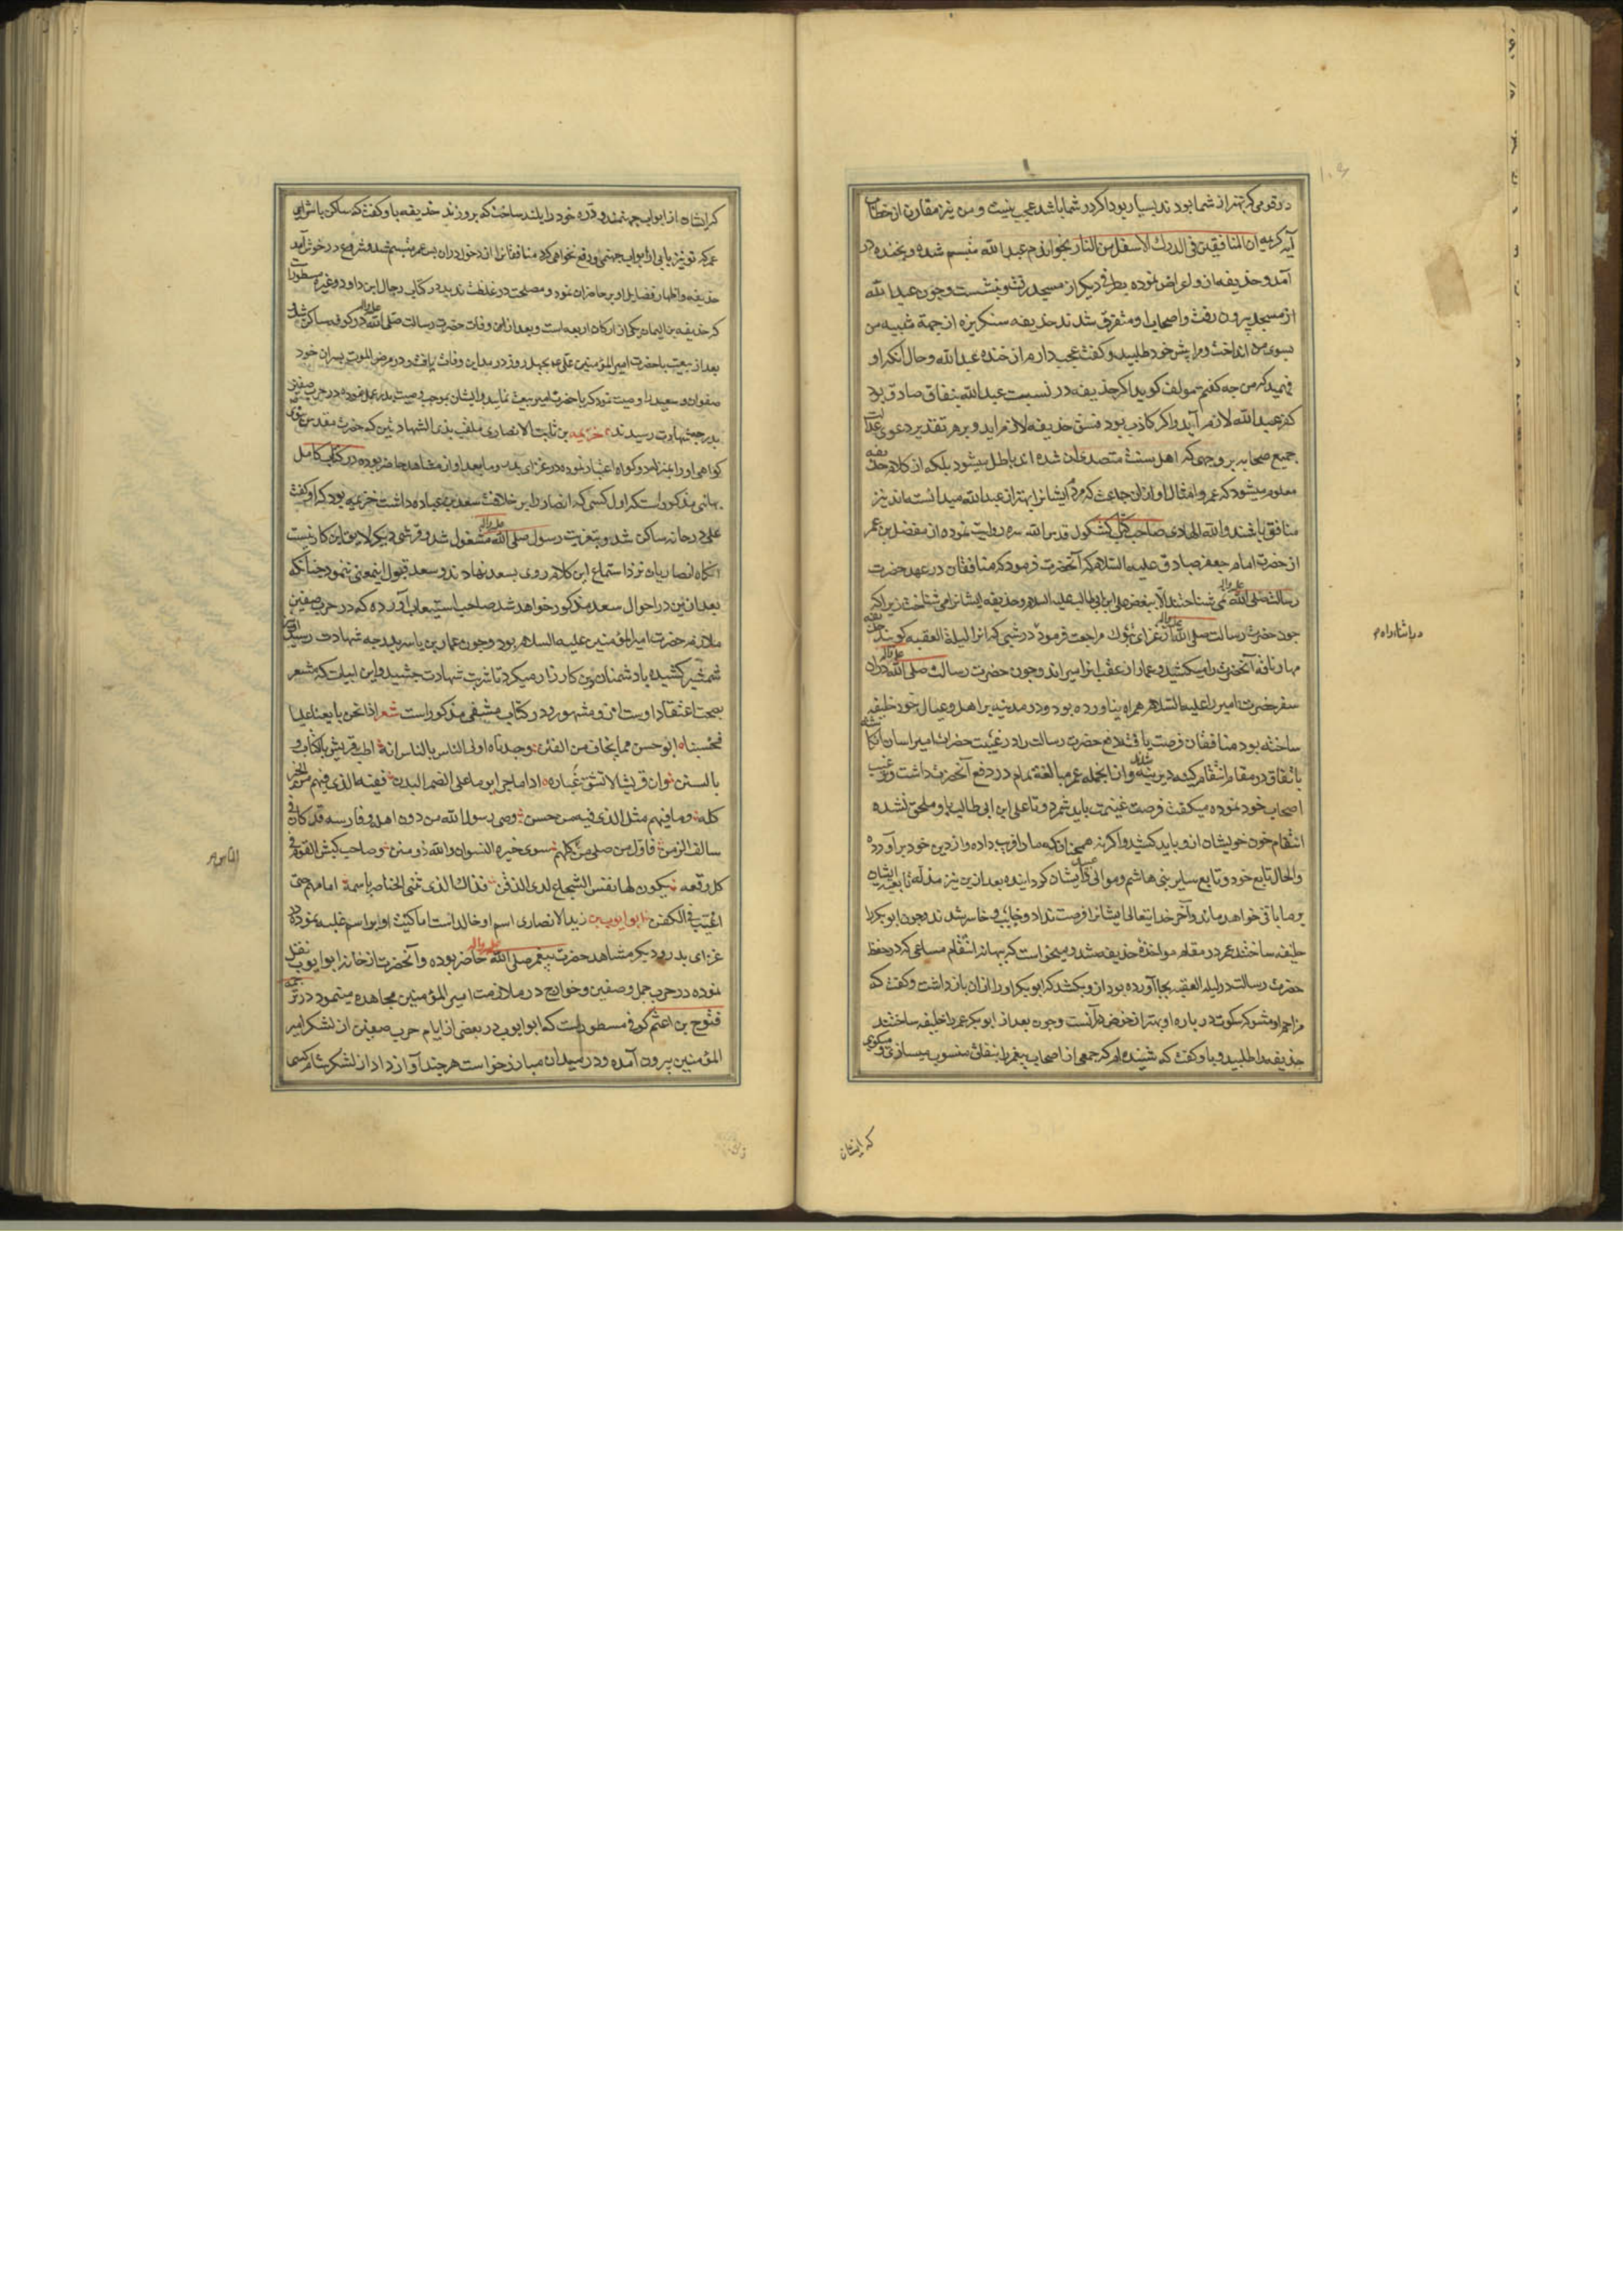 در قومی که بهتر از شما بودند بسیار بود اگر در شما باشد عجب نیست و من نیز مقارن از خطاب
آیه کریمه ان المنافقین فی الدرك الاسفل من النار بخواندم عبد الله متبسم شده و بخنده در
آمد و حذیفه از و اعراض نموده بطرفی دیگر از مسجد رفت و بنشست و چون عبد الله
از مسجد بیرون رفت و اصحاب او متفرق شدند حذیفه سنگریزه از جهة تنبیه من
بسوی من انداخت و مرا پیش خود طلبید و گفت عجب دارم از خنده عبد الله و حال آنکه او
فهمید که من چه گفتم مولف گوید اگر حذیفه در نسبت عبد الله بنفاق صادق بود
کفر عبد الله لازم آید و اگر کاذب بود فسق حذیفه لازم اید و بر هر تقدیر دعوی عدالت
جمیع صحابه بر وجهی که اهل سنت متصدی ان شده اند باطل میشود بلکه از کلام حذیفه
معلوم میشود که عمر و امثال او از ان جماعت که مردم ایشانرا بهتر از عبد الله میدانسته‌اند نیز
منافق باشند والله الهادی صاحب کتاب کشکول قدس الله سره روایت نموده از مفضل بن عمر
از حضرت امام جعفر صادق علیه السلام که آنحضرت فرمود که منافقان در عهد حضرت
رسالت صلی الله علیه واله نمی شناختند الا ببغض علی ابن ابی طالب علیه السلام و حذیفه ایشانرا می شناخت زیرا که
چون حضرت رسالت صلی الله علیه واله از غزای تبوك مراجعت فرمود در شبی که انرا لیلة العقبه گویند حذیفه
مهار ناقه آنحضرت را میکشید و عمار از عقب انرا میراند و چون حضرت رسالت صلی الله علیه واله در ان
سفر حضرت امیر را علیه السلام همراه نیاورده بود و در مدینه بر اهل و عیال خود خلیفه
ساخته بود منافقان فرصت یافته
باتفاق در مقام انتقام کینه دیرینه شدند و از انجمله عمر مبالغه تمام در دفع آنحضرت داشت و ترغیب
اصحاب خود نموده میگفت فرصت غنیمت باید شمرد و تا علی ابن ابی طالب باو ملحق نشده
انتقام خون خویشان از و باید کشید و اگر نه همچنان که
والحال تابع خود و تابع سایر بنی هاشم و موالی ایشان گردانیده بعد ازین نیز
بر ما باقی خواهد ماند و آخر خدایتعالی ایشانرا فرصت نداد و خایب و خاسر شدند و چون ابو بکر را
خلیفه ساختند عمر در مقام مواخذة حذیفه شد و میخواست که بهانه انتقام مساعی که در حفظ
حضرت رسالت در لیله العقبه بجا آورده بود از و بکشد که ابو بکر او را از ان باز داشت و گفت که
مزاحم او مشو که سکوت در باره او بهتر از
حذیفه را طلبید و باو گفت که شنیده‌ام که جمعی از اصحاب پیغمبر را بنفاق منسوب میسازی و میگوی
که ایشان
که ایشان از ابواب جهنمند و دره خود را بلند ساخت که بر و زند حذیفه باو گفت که ساکن باش ای
عمر که تو نیز بابی از ابواب جهنمی
حذیفه و اظهار فضایل او بر حاضران نمود و مصلحت در غلظت ندید و در کتاب رجال ابن داود و غیره مسطورست
که حذیفه بن الیمان یکی از ارکان اربعه است و بعد از وفات حضرت رسالت صلی الله علیه واله در کوفه ساکن شد و
بعد از بیعت با حضرت امیر المؤمنین علی ع بچهل روز در مداین وفات یافت و در مرض الموت پسران خود
صفوان و سعید را وصیت نمود که با حضرت امیر بیعت نمایند و ایشان بموجب وصیت پدر عمل نموده در حرب صفین
بدرجه شهادت رسیدند خزیمه بن ثابت الانصاری ملقب بذی الشهادتین که حضرت مقدس نبوی
گواهی او را بمنزله دو گواه اعتبار نموده در غزای بدر و ما بعد او از مشاهد حاضر بوده در کتاب کامل
بهائی مذکور است که اول کسی که انصار را بر خلافت سعد بن عباده داشت خزیمه بود که او گفت
علی در خانه ساکن شد و بتعزیت رسول صلی الله علیه واله مشغول شد و قرشی دیگر لایق این کار نیست
آنگاه انصاریان نزد استماع این کلام روی بسعد نهادند و سعد قبول اینمعنی ننمود چنانکه
بعد ازین در احوال سعد مذکور خواهد شد صاحب استیعاب آورده که در حرب صفین
ملازم حضرت امیر المؤمنین علیه السلام بود و چون عمار بن یاسر بدرجه شهادت رسید
شمشیر کشیده با دشمنان دین کارزار میکرد تا شربت شهادت چشید و این ابیات که مشعر
بصحت اعتقاد اوست از و مشهور و در کتاب مشفی مذکور است شعر اذا نحن بایعنا علیا
فحسبنا ابو حسن مما یخاف من الفتن وجدناه اولی الناس بالناس انه اطب قریش بالکتاب و
بالسنن وان قریشا لا تشق غباره اذا ما جری یوما علی الضمر البدن ففیه الذی فیهم من الخیر
کله وما فیهم مثل الذی فیه من حسن وصی رسول الله من دون اهله وفارسه قد کان فی
سالف الزمن فاول من صلی من کلهم سوی خیرة النسوان والله ذو منن وصاحب کبش القوم فی
کل وقعه یکون لها نفس الشجاع لدی الذقن فذاك الذی تثنی الخناصر باسمه امامهم حتی
اغیب فی الکفن ابو ایوب بن زید الانصاری اسم او خالد است اما کنیت او بر اسم غلبه نموده در
غزای بدر و دیگر مشاهد حضرت پیغمبر صلی الله علیه واله حاضر بوده و آنحضرت از خانه ابو ایوب نقل
نموده در حرب جمل و صفین و خوارج در ملازمت امیر المؤمنین مجاهده مینمود در ترجمه
فتوح بن اعثم کوفی مسطور است که ابو ایوب در بعضی از ایام حرب صفین از لشکر امیر
المؤمنین بیرون آمده و در میدان مبارز خواست هر چند آواز داد از لشکر شام کسی